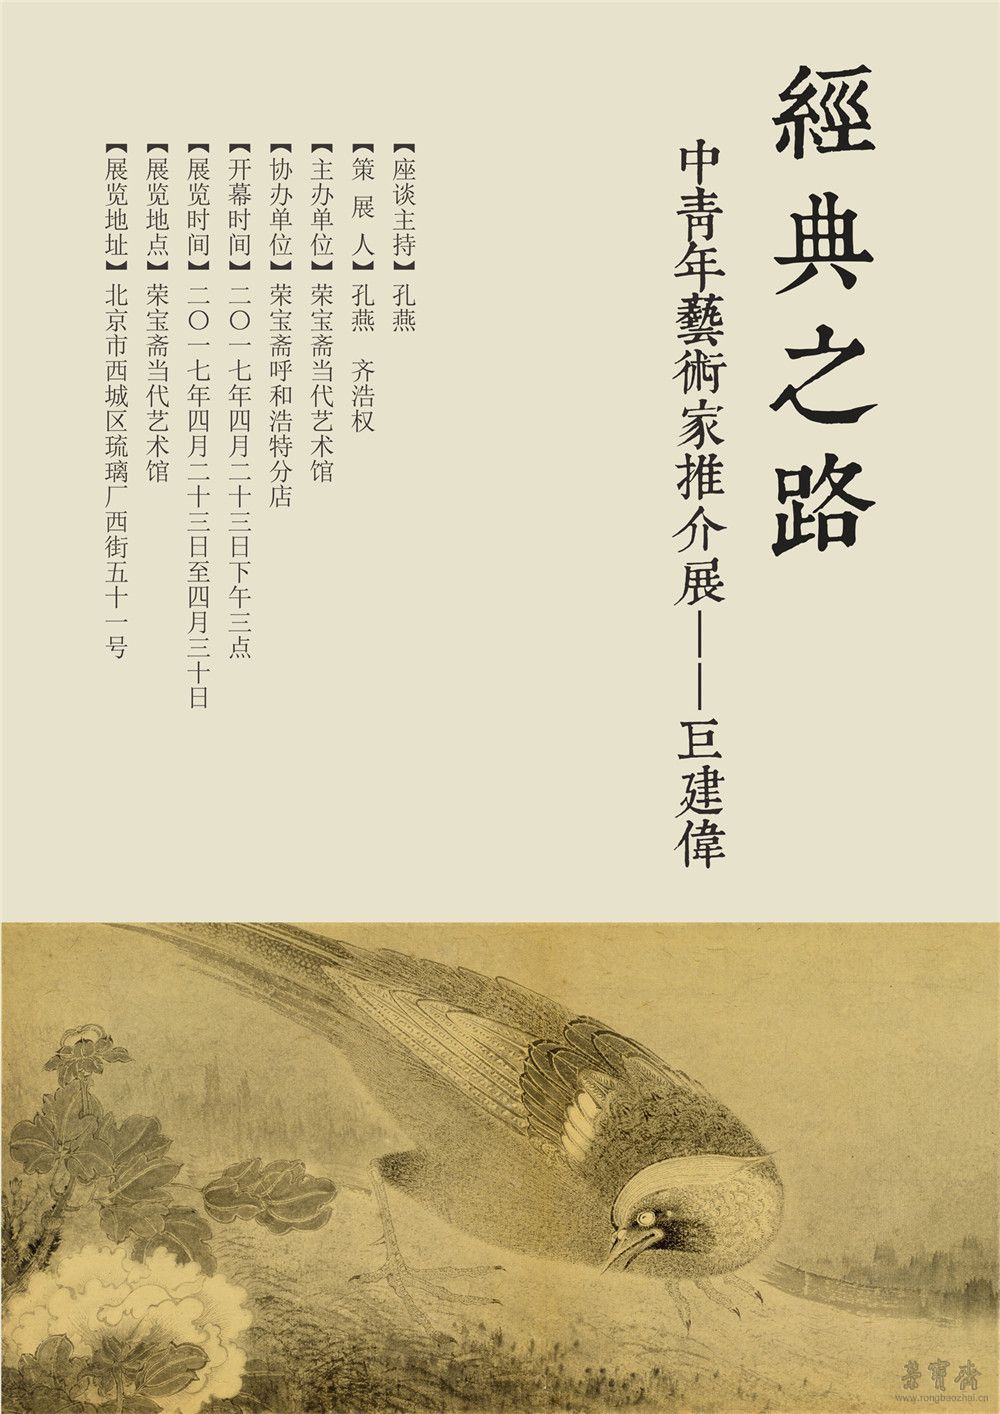 經典之路
中青年藝術家推介展——巨建偉
【座谈主持】孔燕
【策展人】孔燕 齐浩权
【主办单位】荣宝斋当代艺术馆
【协办单位】荣宝斋呼和浩特分店
【开幕时间】二〇一七年四月二十三日下午三点
【展览时间】二〇一七年四月二十三日至四月三十日
【展览地点】荣宝斋当代艺术馆
【展览地址】北京市西城区琉璃厂西街五十一号
榮寶齋
www.rongbaozhai.cn